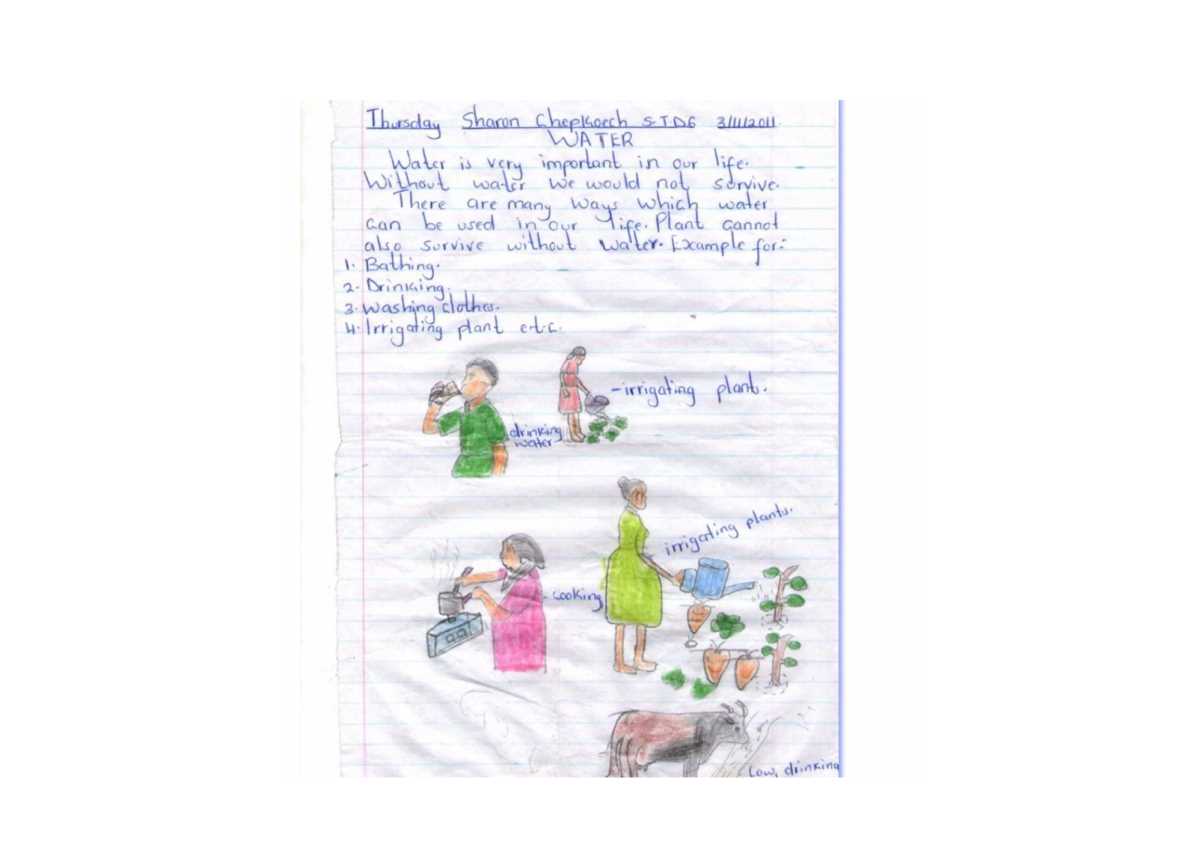 Thursday Sharon Chepkoech STD6 3/11/2011
WATER
Water is very important in our life.
Without water we would not survive.
There are many ways which water
can be used in our life. Plant cannot
also survive without water. Example for:
1. Bathing.
2. Drinking.
3. Washing clothes.
4. Irrigating plant e.t.c.
-irrigating plant.
drinking
water
irrigating plants.
- cooking
Cow, drinking